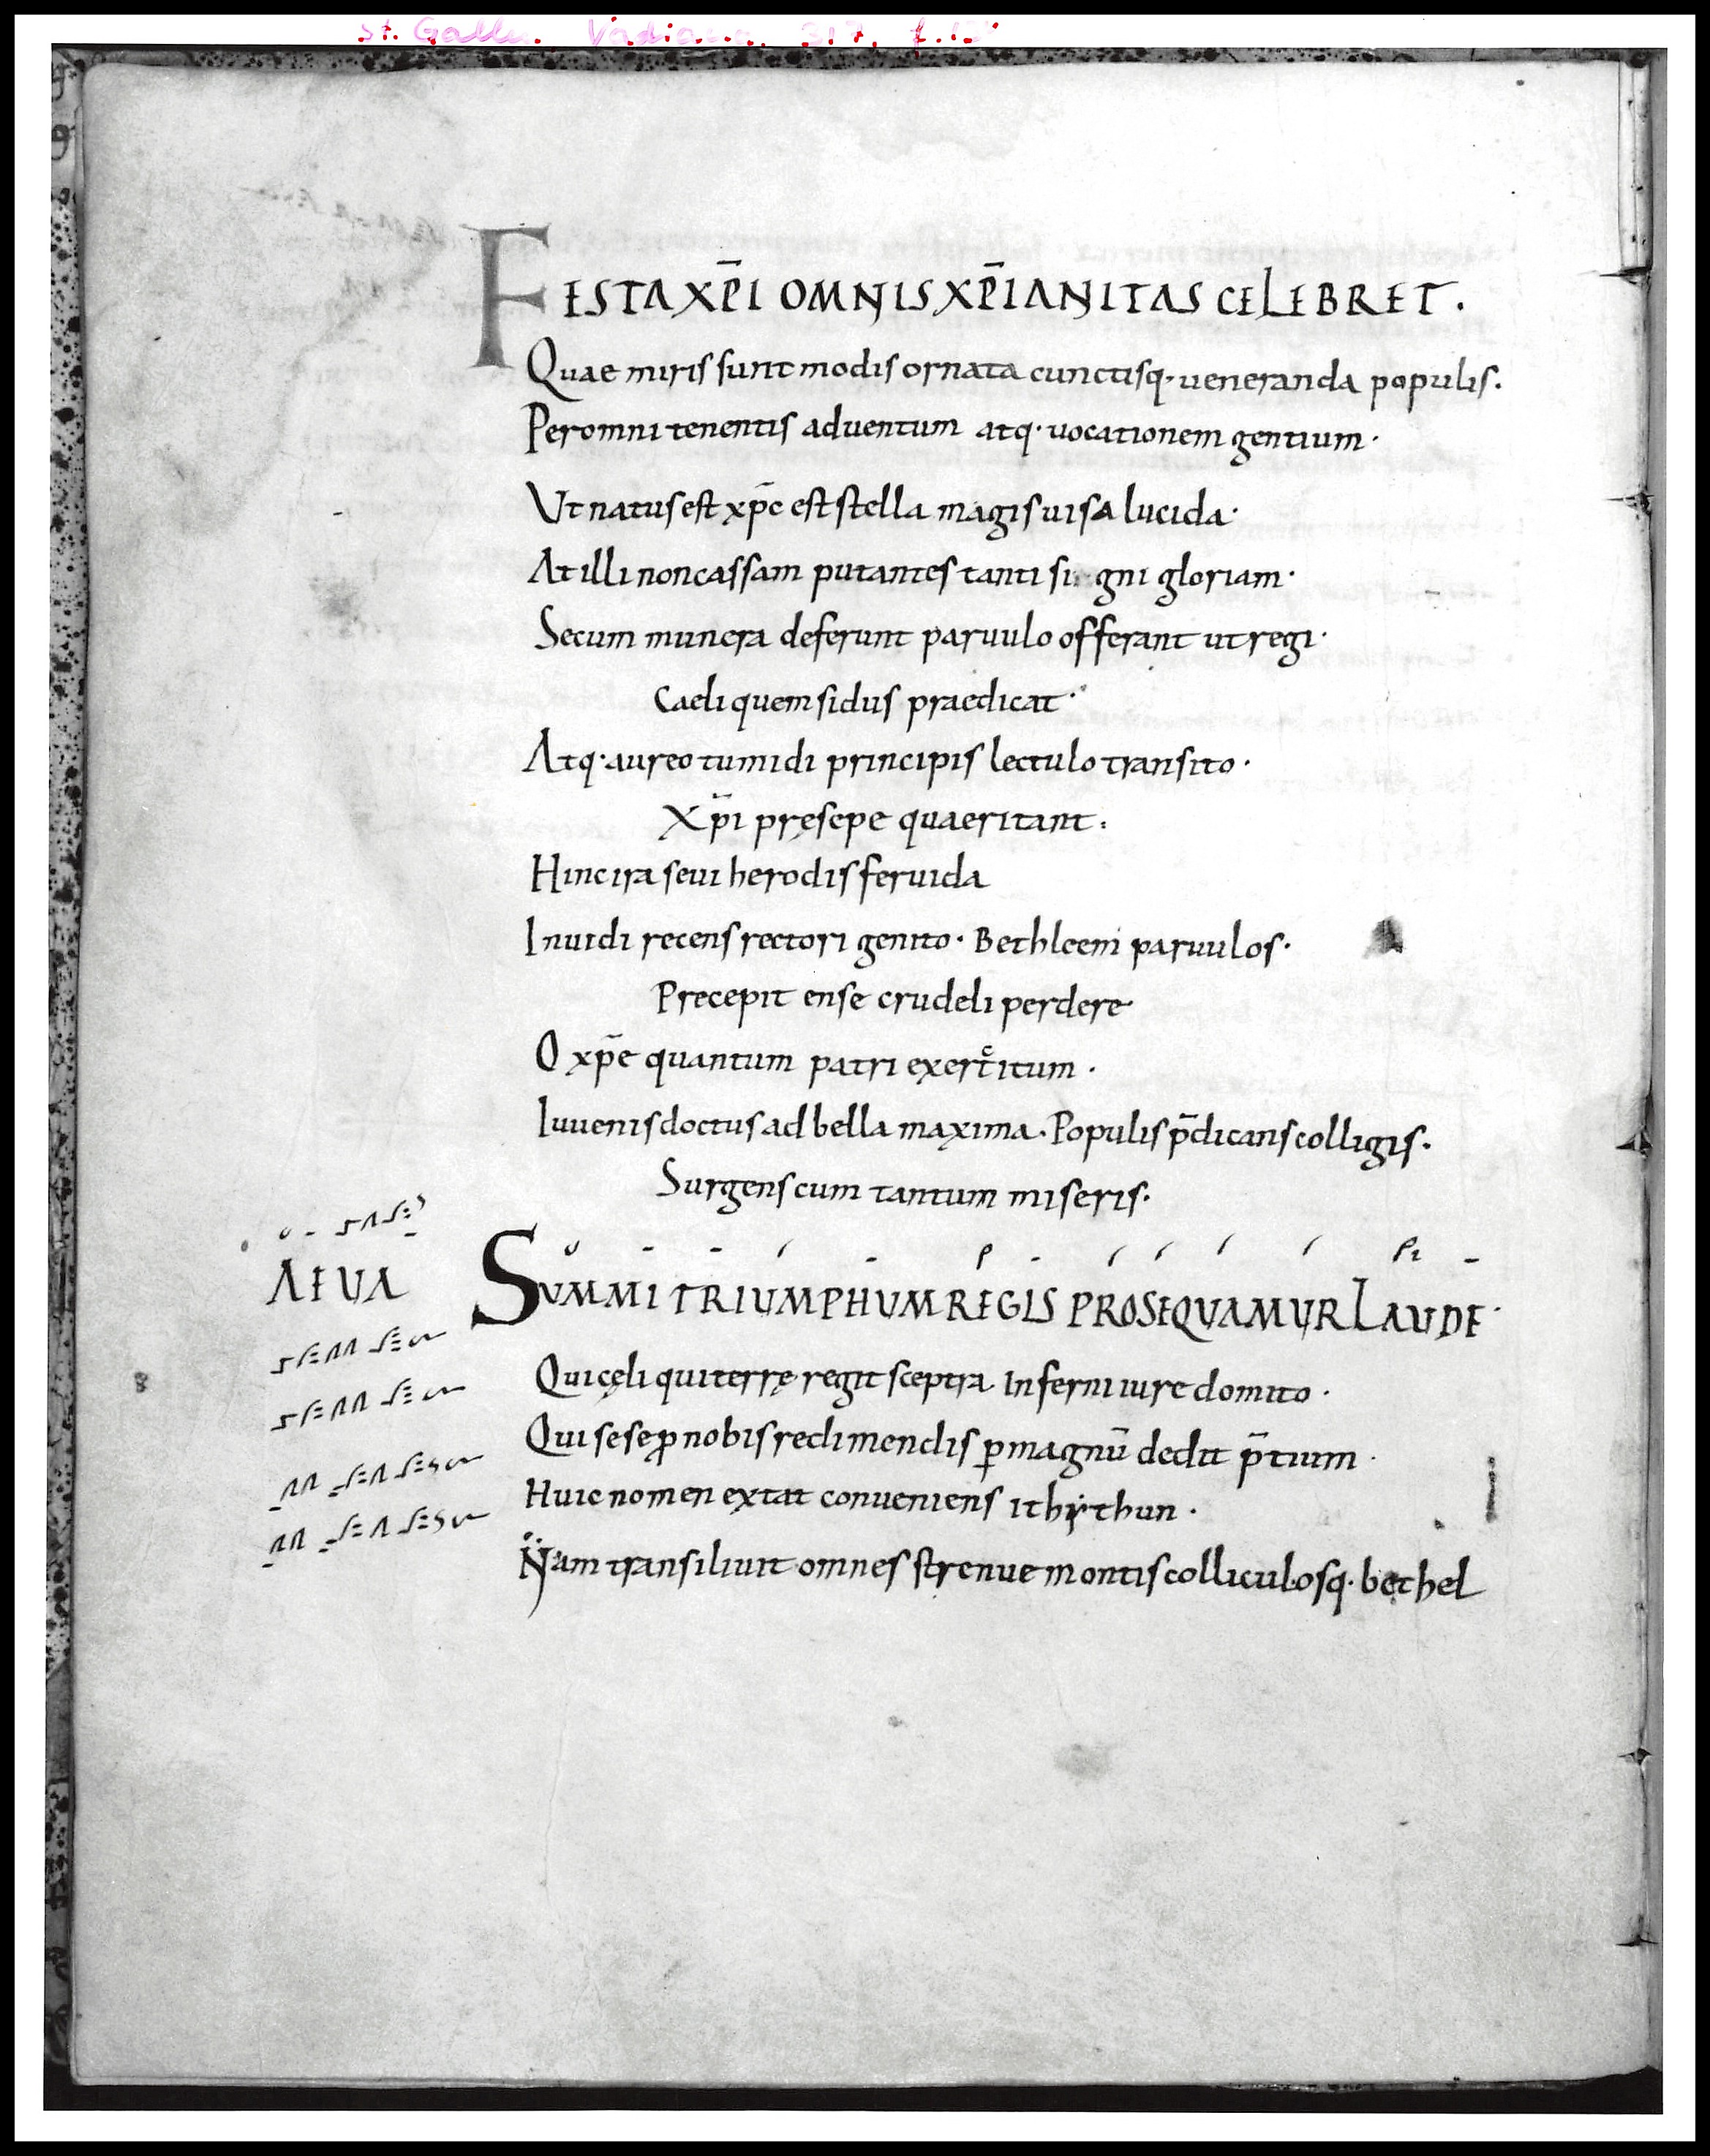 St. Gallen Vadiana 317, f.13
FESTA XP̄I OMNIS XP̄IANITAS CELEBRET.
Quae miris sunt modis ornata cunctisq· ueneranda populis.
Per omnitenentis aduentum atq· uocationem gentium·
Ut natus est xp̄c est stella magis uisa lucida·
At illi non cassam putantes tanti si gni gloriam·
Secum munera deferunt paruulo offerant ut regi·
Caeli quem sidus praedicat·
Atq· aureo tumidi principis lectulo transito·
Xp̄i pręsepe quaeritant.
Hinc ira seui herodis feruida
Inuidi recens rectori genito· Bethleem paruulos·
Precepit ense crudeli perdere
O xp̄e quantum patri exercitum·
Iuuenis doctus ad bella maxima· Populis p̄dicans colligis·
Surgens cum tantum miseris·
AEUA
SUMMI TRIUMPHUM REGIS PROSEQUAMUR LAUDE·
Qui cęli qui terrę regit sceptra· Inferni iure domito·
Qui sese ꝓ nobis redimendis ꝑ magnū dedit p̄tium·
Huic nomen extat conueniens ithythun·
Nam transiliuit omnes strenue montis colliculosq· bethel